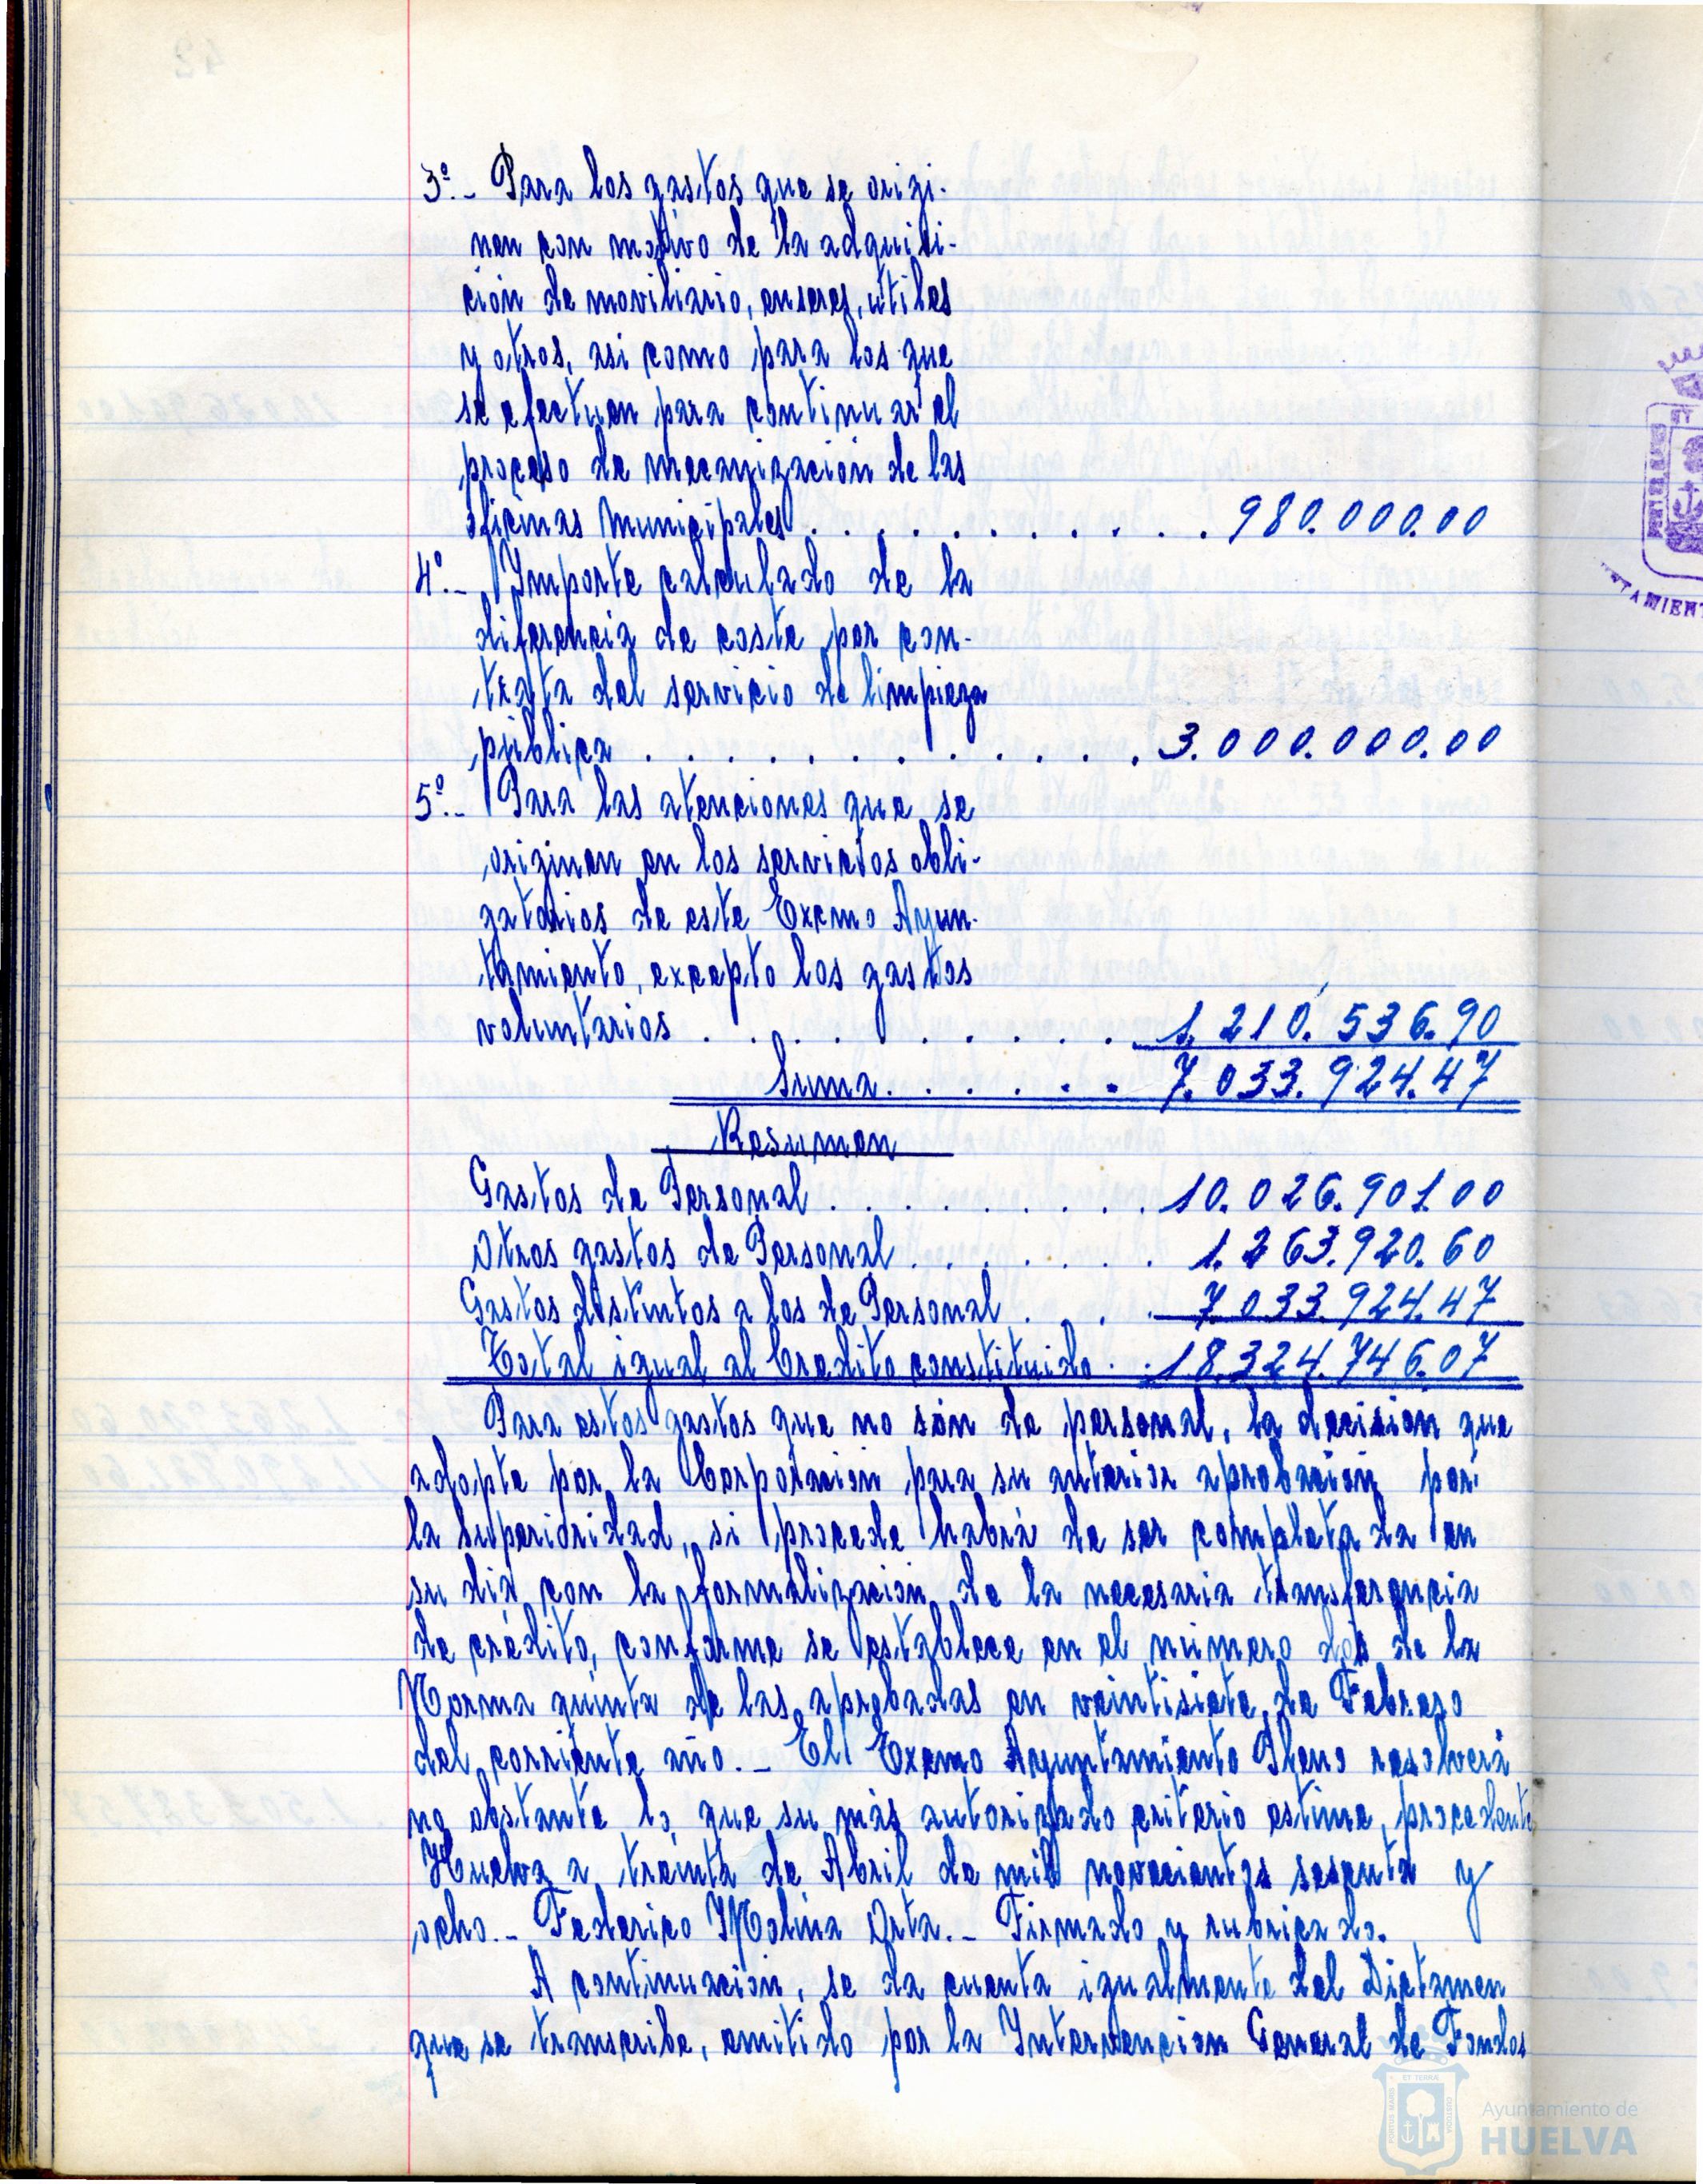 3º.- Para los gastos que se origi-
nen con motivo de la adquisi-
ción de moviliario, enseres, útiles
y otros, asi como para los que
se efectuen para continuar el
proceso de mecanización de las
oficinas Municipales . . . . . . . . . . 980.000.00
4º.- Importe calculado de la
diferencia de coste por con-
trata del servicio de limpieza
pública . . . . . . . . . . . . 3.000.000.00
5º.- Para las atenciones que se
originen en los servicios obli-
gatorios de este Excmo Ayun-
tamiento, excepto los gastos
voluntarios . . . . . . . . . . 1.210.536.90
Suma. . . . . . 7.033.924.47
Resumen
Gastos de Personal . . . . . . . . . 10.026.901.00
Otros gastos de Personal . . . . . . . 1.263.920.60
Gastos distintos a los de Personal . . . . 7.033.924.47
Total igual al Credito constituido . . 18.324.746.07
Para estos gastos que no són de personal, la decision que
adopte por la Corporación para su anterior aprobación por
la Superioridad, si procede habrá de ser completada en
su día con la formalización de la necesaria transferencia
de crédito, conforme se establece en el número dos de la
Norma quinta de las aprobadas en veintisiete de Febrero
del corriente año.- El Excmo Ayuntamiento Pleno resolverá
no obstante lo que su más autorizado criterio estime procedente
Huelva a treinta de Abril de mil novecientos sesenta y
ocho.- Federico Molina Orta.- Firmado y rubricado.
A continuación, se da cuenta igualmente del Dictamen
que se transcribe, emitido por la Intervención General de Fondos
Ayuntamiento de
HUELVA